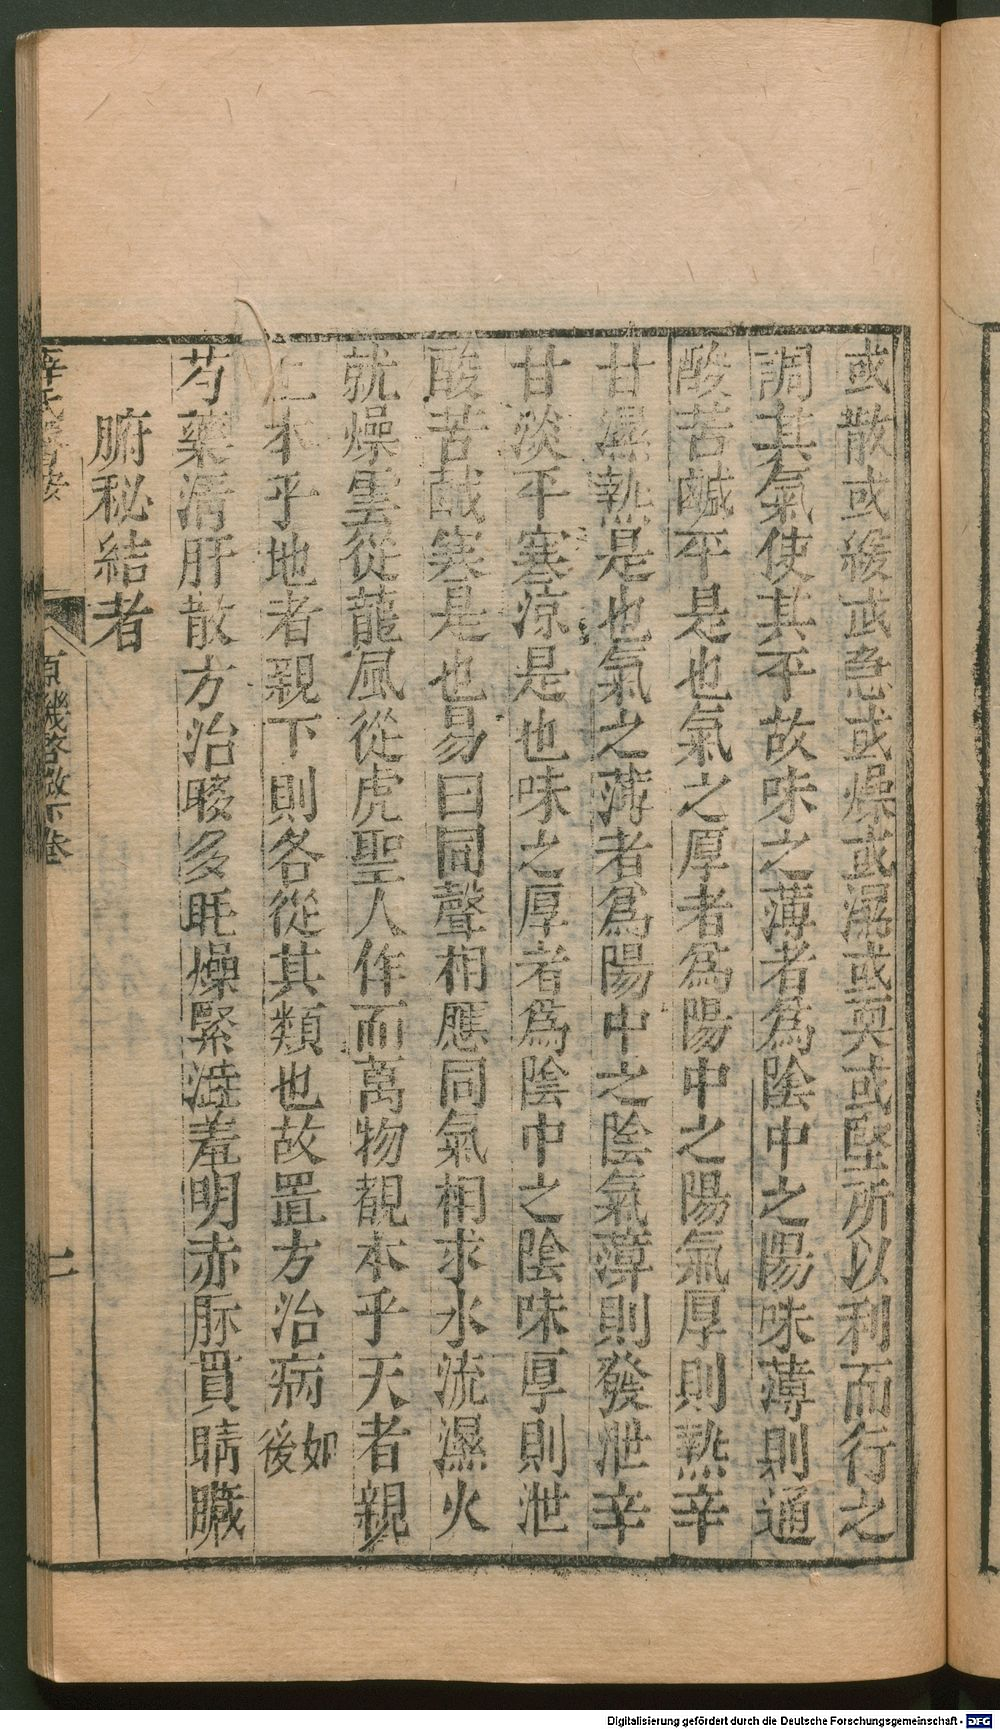 或散或緩或急或燥或濕或耎或堅所以利而行之
調其氣使其平故味之薄者爲陰中之陽味薄則通
酸苦鹹平是也氣之厚者爲陽中之陽氣厚則熱辛
甘濕熱是也氣之薄者爲陽中之陰氣薄則發泄辛
甘淡平寒凉是也味之厚者爲陰中之陰味厚則泄
酸苦鹹寒是也易曰同聲相應同氣相求水流濕火
就燥雲從龍風從虎聖人作而萬物覩本乎天者親
上本乎地者親下則各從其類也故置方治病如後
芍藥清肝散方治眵多眊燥緊澁羞明赤脉貫睛臓
腑秘結者
薛氏醫按
原機啓微下卷
二
Digitalisierung gefördert durch die Deutsche Forschungsgemeinschaft - DFG